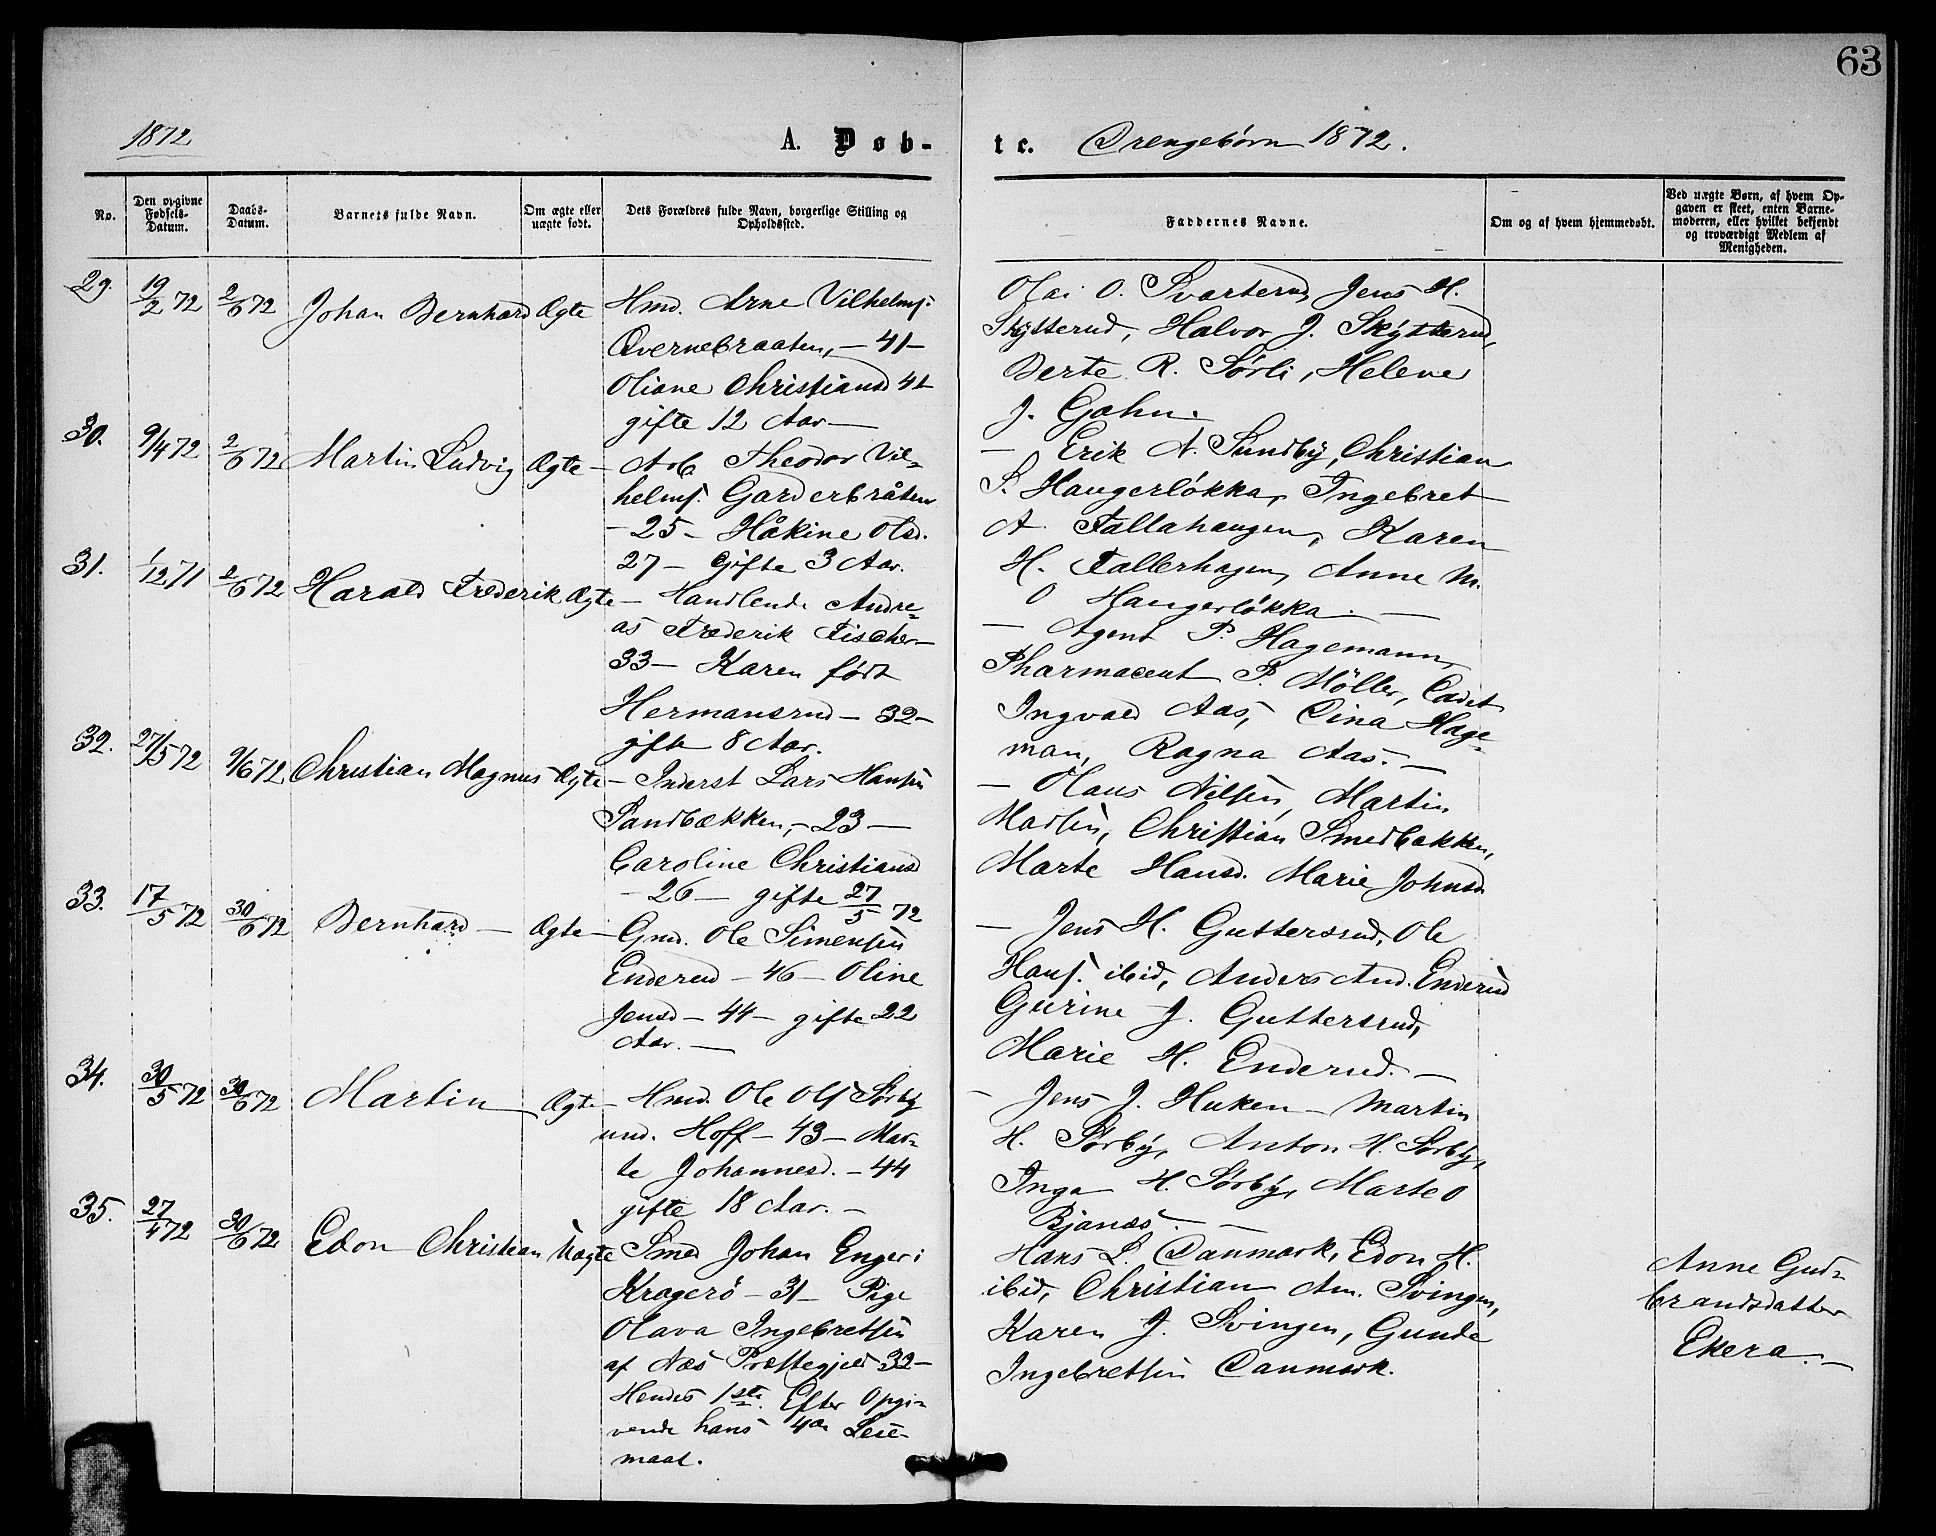 63
1872
A. Døb-
te. Drengebørn 1872.
No.
Den opgivne Fødsels-Datum.
Daabs-Datum.
Barnets fulde Navn.
Om ægte eller uægte født.
Dets Forældres fulde Navn, borgerlige Stilling og Opholdssted.
Faddernes Navne.
Om og af hvem hjemmedøbt.
Ved uægte Børn, af hvem Opgaven er skeet, enten Barnemoderen, eller hvilket bekjendt og troværdigt Medlem af Menigheden.
29. 19/2 72 2/6 72 Johan Bernhard Ægte
Hmd. Arne Vilhelmf.
Qvernebraaten, - 41 -
Oliane Christiansd 41
gifte 12 Aar -
Olai O. Svarterud, Jens H.
Skytterud, Halvor J. Skytterud,
Berte R. Sørli, Helene
J. Gohn.
30. 9/4 72 2/6 72 Martin Ludvig Ægte -
Arb Theodor Vil-
helmf. Garderbråten
- 25 - Håkine Olsd.
27 - Gifte 3 Aar.
- Erik N. Sundby, Christian
S. Haugerløkka, Ingebret
A. Fallahaugen, Karen
H. Fallerhagen, Anne M.
O Haugerløkka. -
31. 1/12 71 2/6 72 Harald Frederik Ægte -
Handlende Andre-
as Frederik Fischer -
33 - Karen født
Hermansrud - 32 -
gifte 8 Aar.
- Agent P. Hagemann,
Pharmaceut P. Møller, Cadet
Ingvald Aas, Dina Hage-
man, Ragna Aas. -
32. 27/5 72 9/6 72 Christian Magnus Ægte
- Inderst Lars Hansen
Sandbækken, - 23 -
Caroline Christiansd
- 26 - gifte 27/5 72
- Olaus Nilsen, Martin
Madsen, Christian Smedbakken,
Marte Hansd. Marie Johnsd
33. 17/5 72 30/6 72 Bernhard - Ægte -
Gmd. Ole Simensen
Enderud - 46 - Oline
Jensd - 44 - gifte 22
Aar. -
- Jens H. Guttersrud, Ole
Hansf. ibid, Anders And. Enderud
Gurine J. Guttersrud,
Marie H. Enderud. -
34. 30/5 72 30/6 72 Martin Ægte
- Hmd. Ole Olf Sørby
und. Hoff - 43 - Mar-
te Johannesd. - 44
gifte 18 Aar. -
- Jens J. Huken - Martin
H. Sørby, Anton H. Sørby,
Inga H. Sørby, Marte O
Bjanæs. -
35. 27/4 72 30/6 72 Edon Christian Uægte
Smed Johan Enger i
Kragerø - 31 - Pige
Olava Ingebretsen
af Næs Præstegjeld 32 -
Hendes 1ste. Efter Opgi-
vende hans 4de Leie-
maal.
Hans L. Danmark, Edon H.
ibid, Christian Am. Svingen,
Karen J. Svingen, Gunda
Ingebretsen Danmark.
Anne Gud-
brandsdatter
Ekera. -